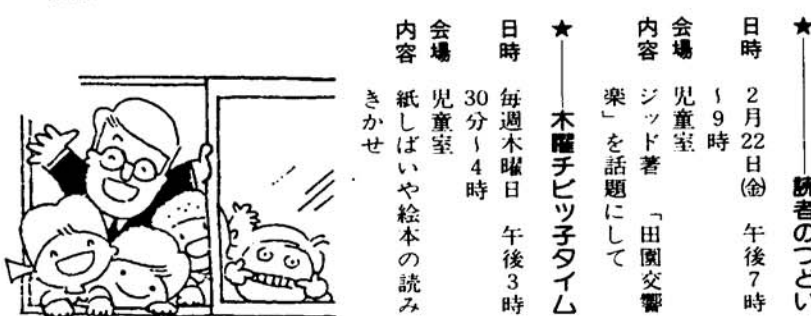 ★――読者のつどい
日時 2月22日㈮ 午後7時
～9時
会場 児童室
内容 ジッド著 「田園交響
楽」を話題にして
★――木曜チビッ子タイム
日時 毎週木曜日 午後3時
30分～4時
会場 児童室
内容 紙しばいや絵本の読み
きかせ